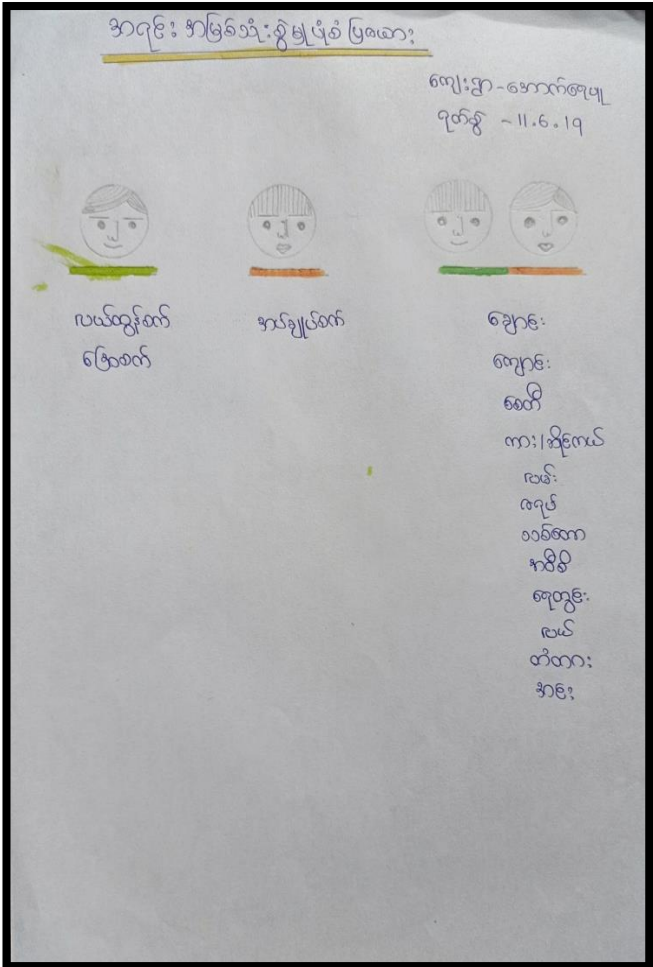 အရင်း အမြစ်သုံးစွဲမှုပုံစံ ပြဇယား
ကျေးရွာ - အောက်ရေပူ
ရက်စွဲ - 11.6.19
လယ်ထွန်စက်
ခြွေစက်
အပ်ချုပ်စက်
ချောင်း
ကျောင်း
စေတီ
ကား/ဆိုင်ကယ်
လမ်း
ဇရပ်
သစ်တော
အဝီစိ
ရေတွင်း
လယ်
တံတား
အင်း